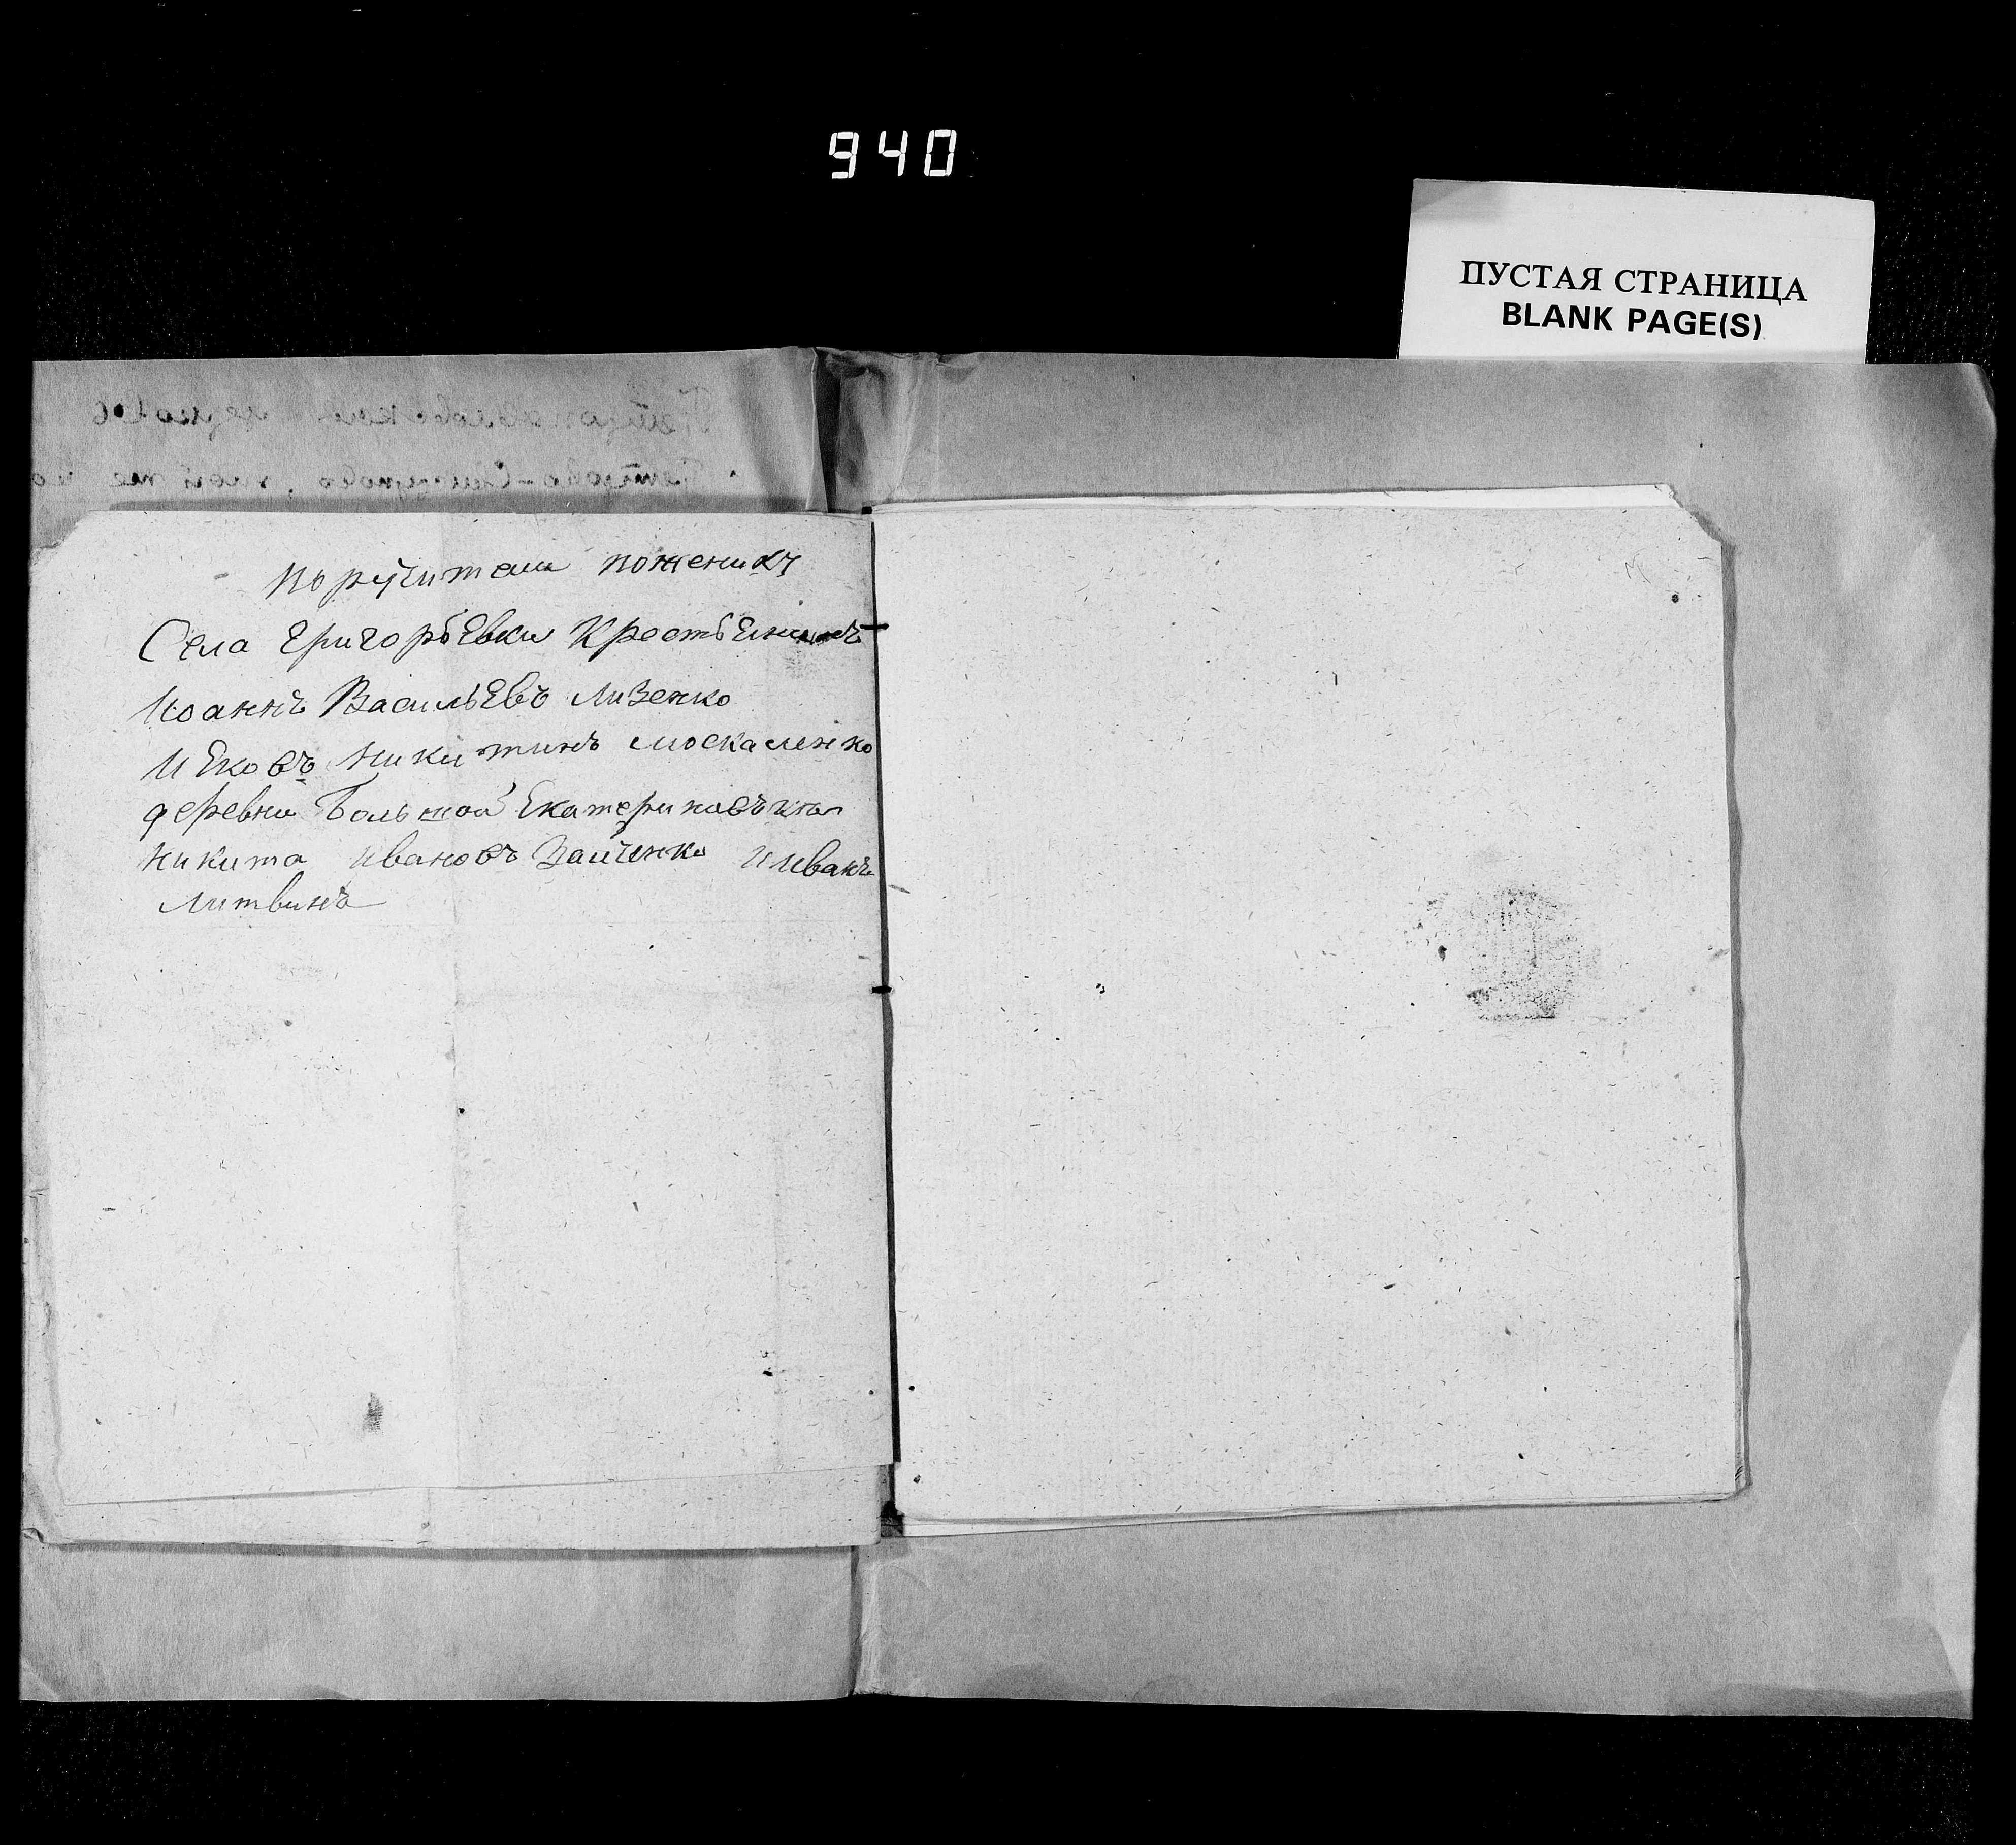 940
ПУСТАЯ СТРАНИЦА
BLANK PAGE(S)
поручители поженихъ
Села Григорьевки Крестьенинъ
Иоаннъ Васильевъ Лизенко
И Ековъ Никитинъ москаленко
деревни Большой Екатериновъки
Никита Ивановъ Зайченко и Иванъ
Литвинъ